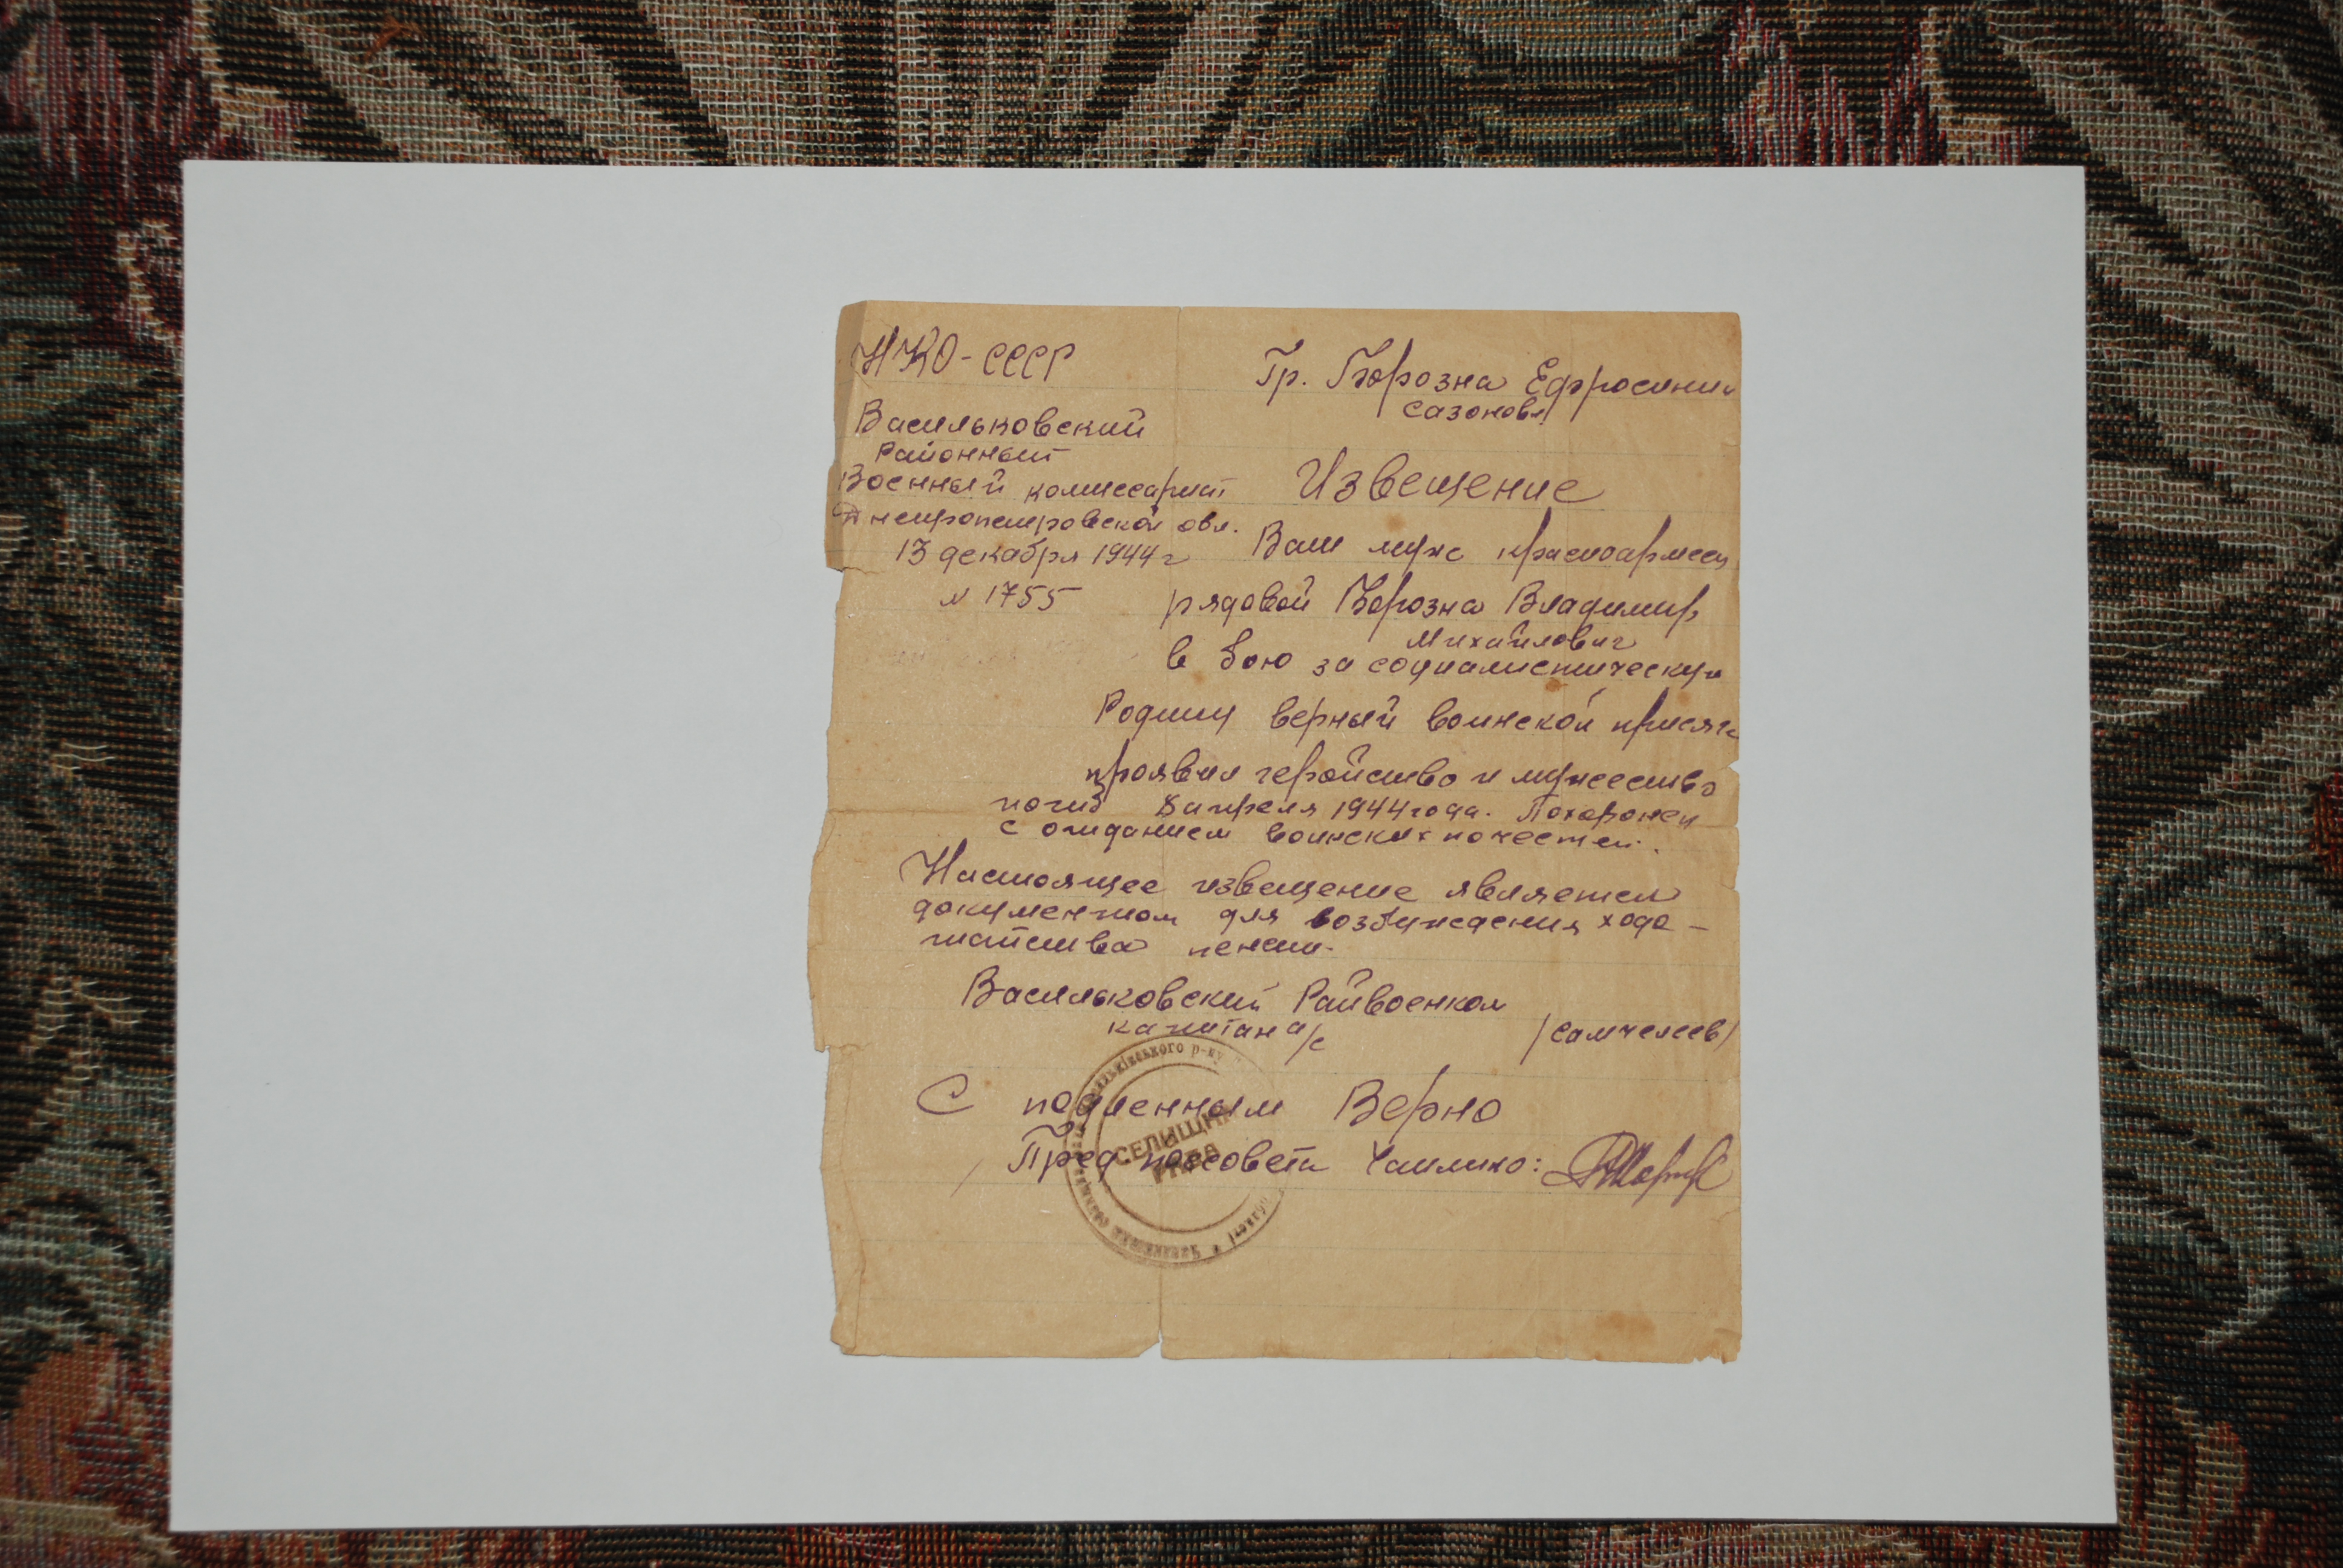 НКО-СССР
Гр. Борозна Ефросинии
Сазоновн
Васильковский
Районный
Военный комиссариат
Днепропетровской обл.
13 декабря 1944 г
N 1755
Извещение
Ваш муж красноармеец
рядовой Борозна Владимир
Михайлович
в бою за социалистическую
Родину верный воинской присяге
проявил геройство и мужество
погиб 8 апреля 1944 года. Похоронен
с отданием воинских почестей.
Настоящее извещение является
документом для возбуждения хода-
тайства пенсии.
Васильковский Райвоенком
капитан а/с
С подленным Верно
Пред поссовета Чаплино:
СЕЛИЩНА
РАДА
р-ну